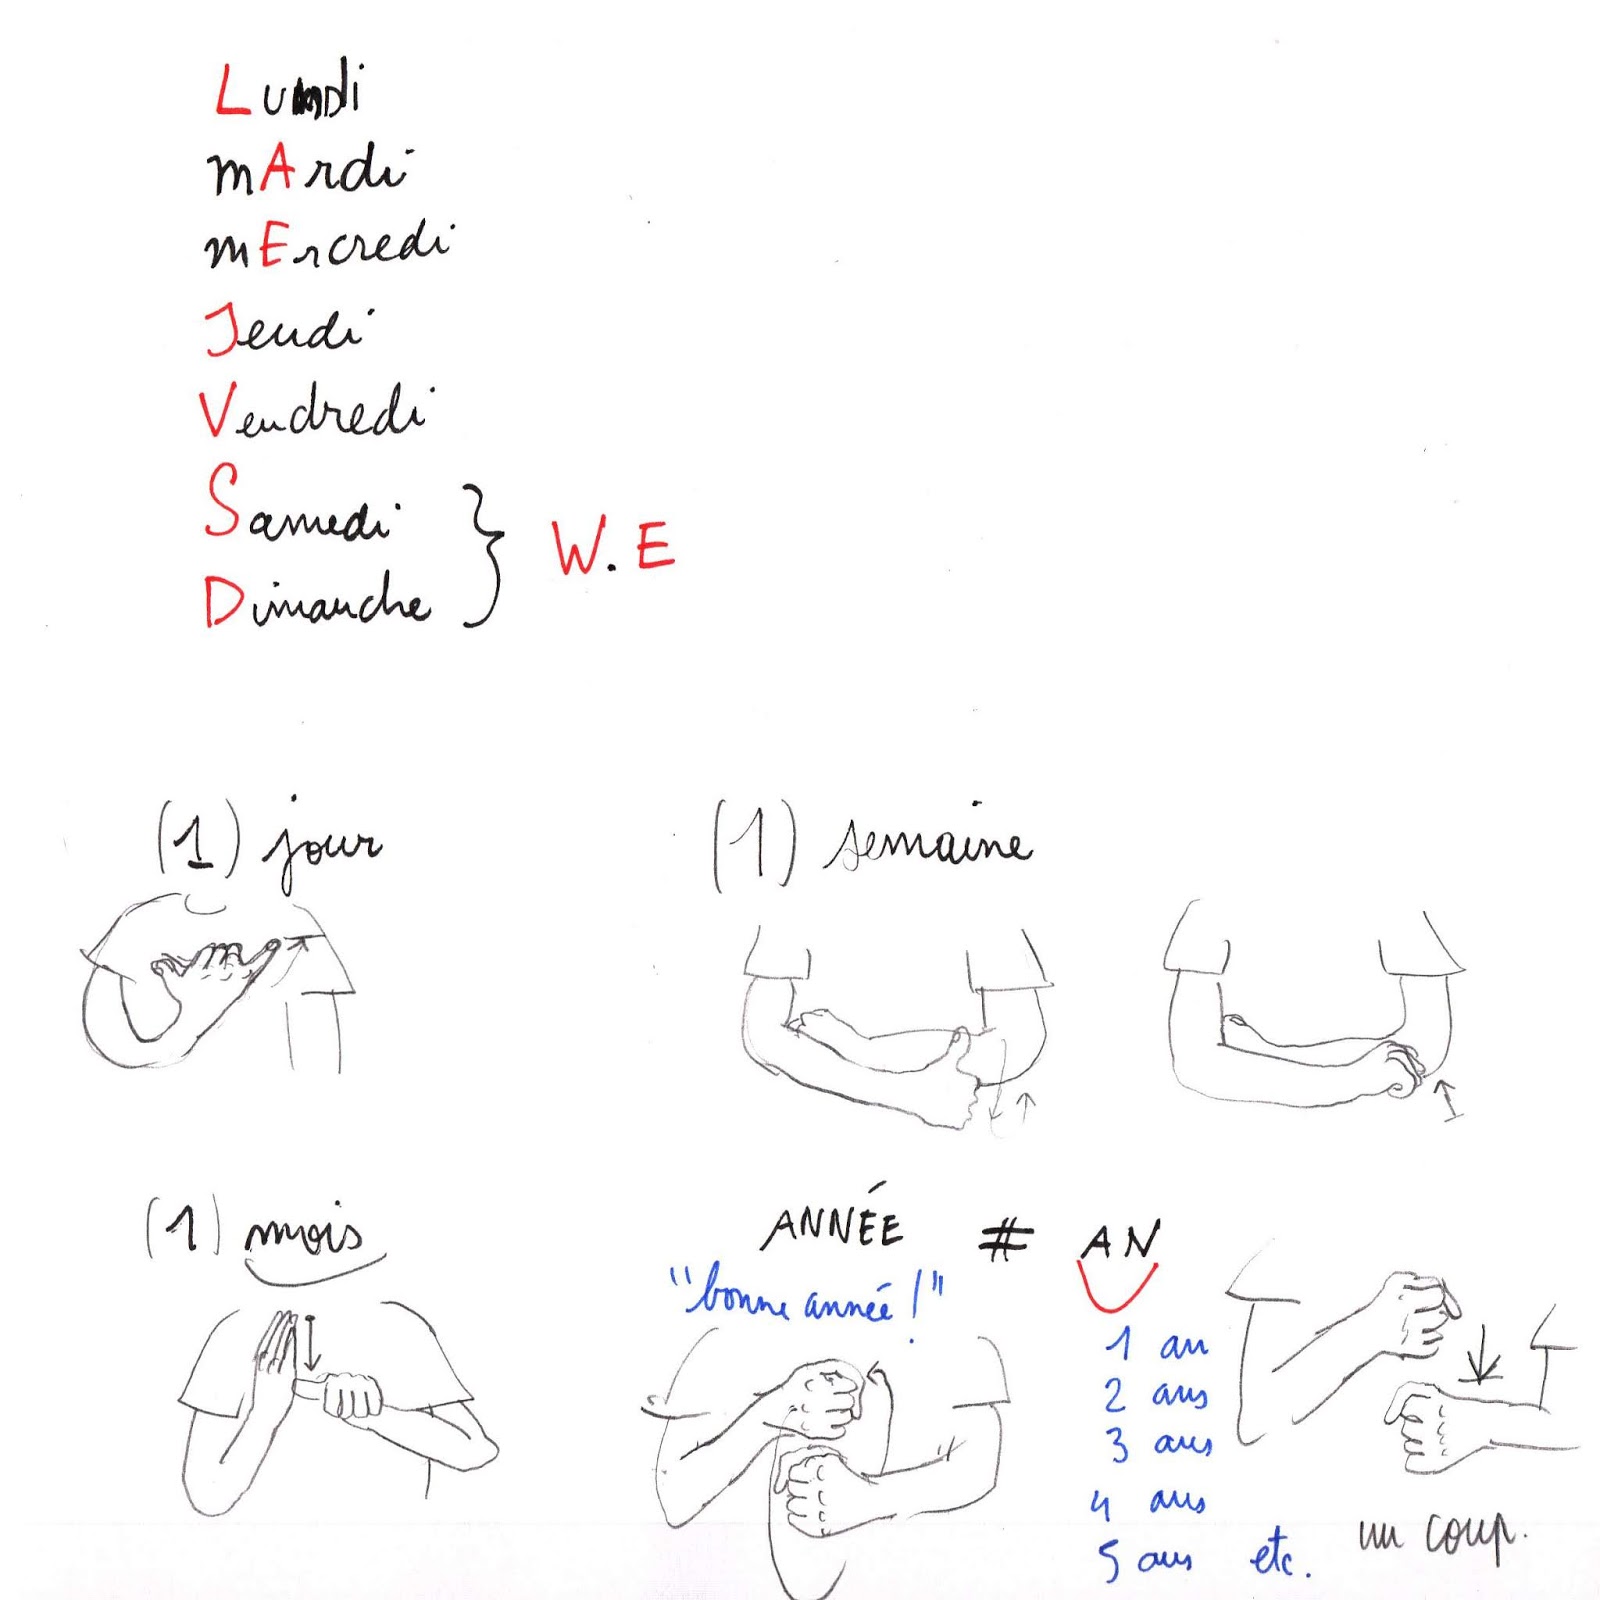 Lundi
mArdi
mErcredi
Jeudi
Vendredi
Samedi
Dimanche
W.E
(1) jour
(1) semaine
(1) mois
ANNÉE # AN
"bonne année !"
1 an
2 ans
3 ans
4 ans
5 ans etc.
un coup.